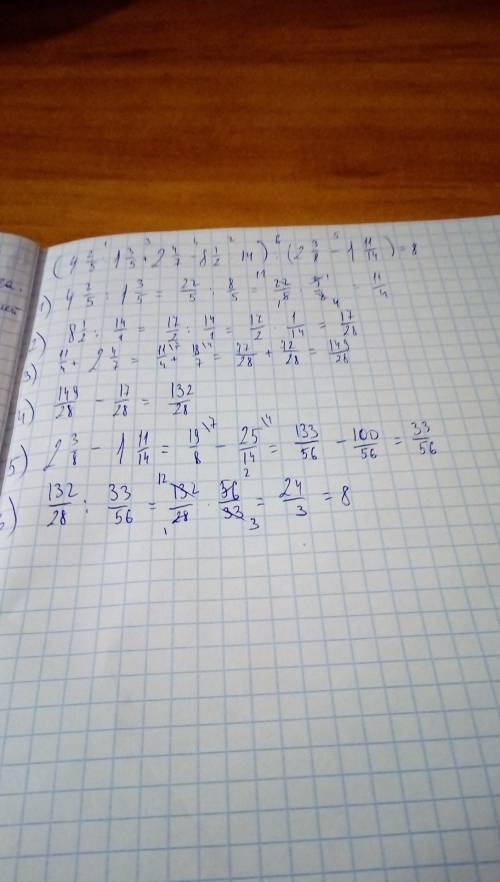 (4 2/5 : 1 3/5 + 2 4/7 - 8 1/2 : 14) : (2 3/8 - 1 11/14) = 8
1) 4 2/5 : 1 3/5 = 22/5 : 8/5 = 22/5 · 5/8 = 11/4
2) 8 1/2 : 14/1 = 17/2 : 14/1 = 17/2 · 1/14 = 17/28
3) 11/4 + 2 4/7 = 11/4 \7 + 18/7 \4 = 77/28 + 72/28 = 149/28
4) 149/28 - 17/28 = 132/28
5) 2 3/8 - 1 11/14 = 19/8 \7 - 25/14 \4 = 133/56 - 100/56 = 33/56
6) 132/28 : 33/56 = 132/28 · 56/33 = 24/3 = 8